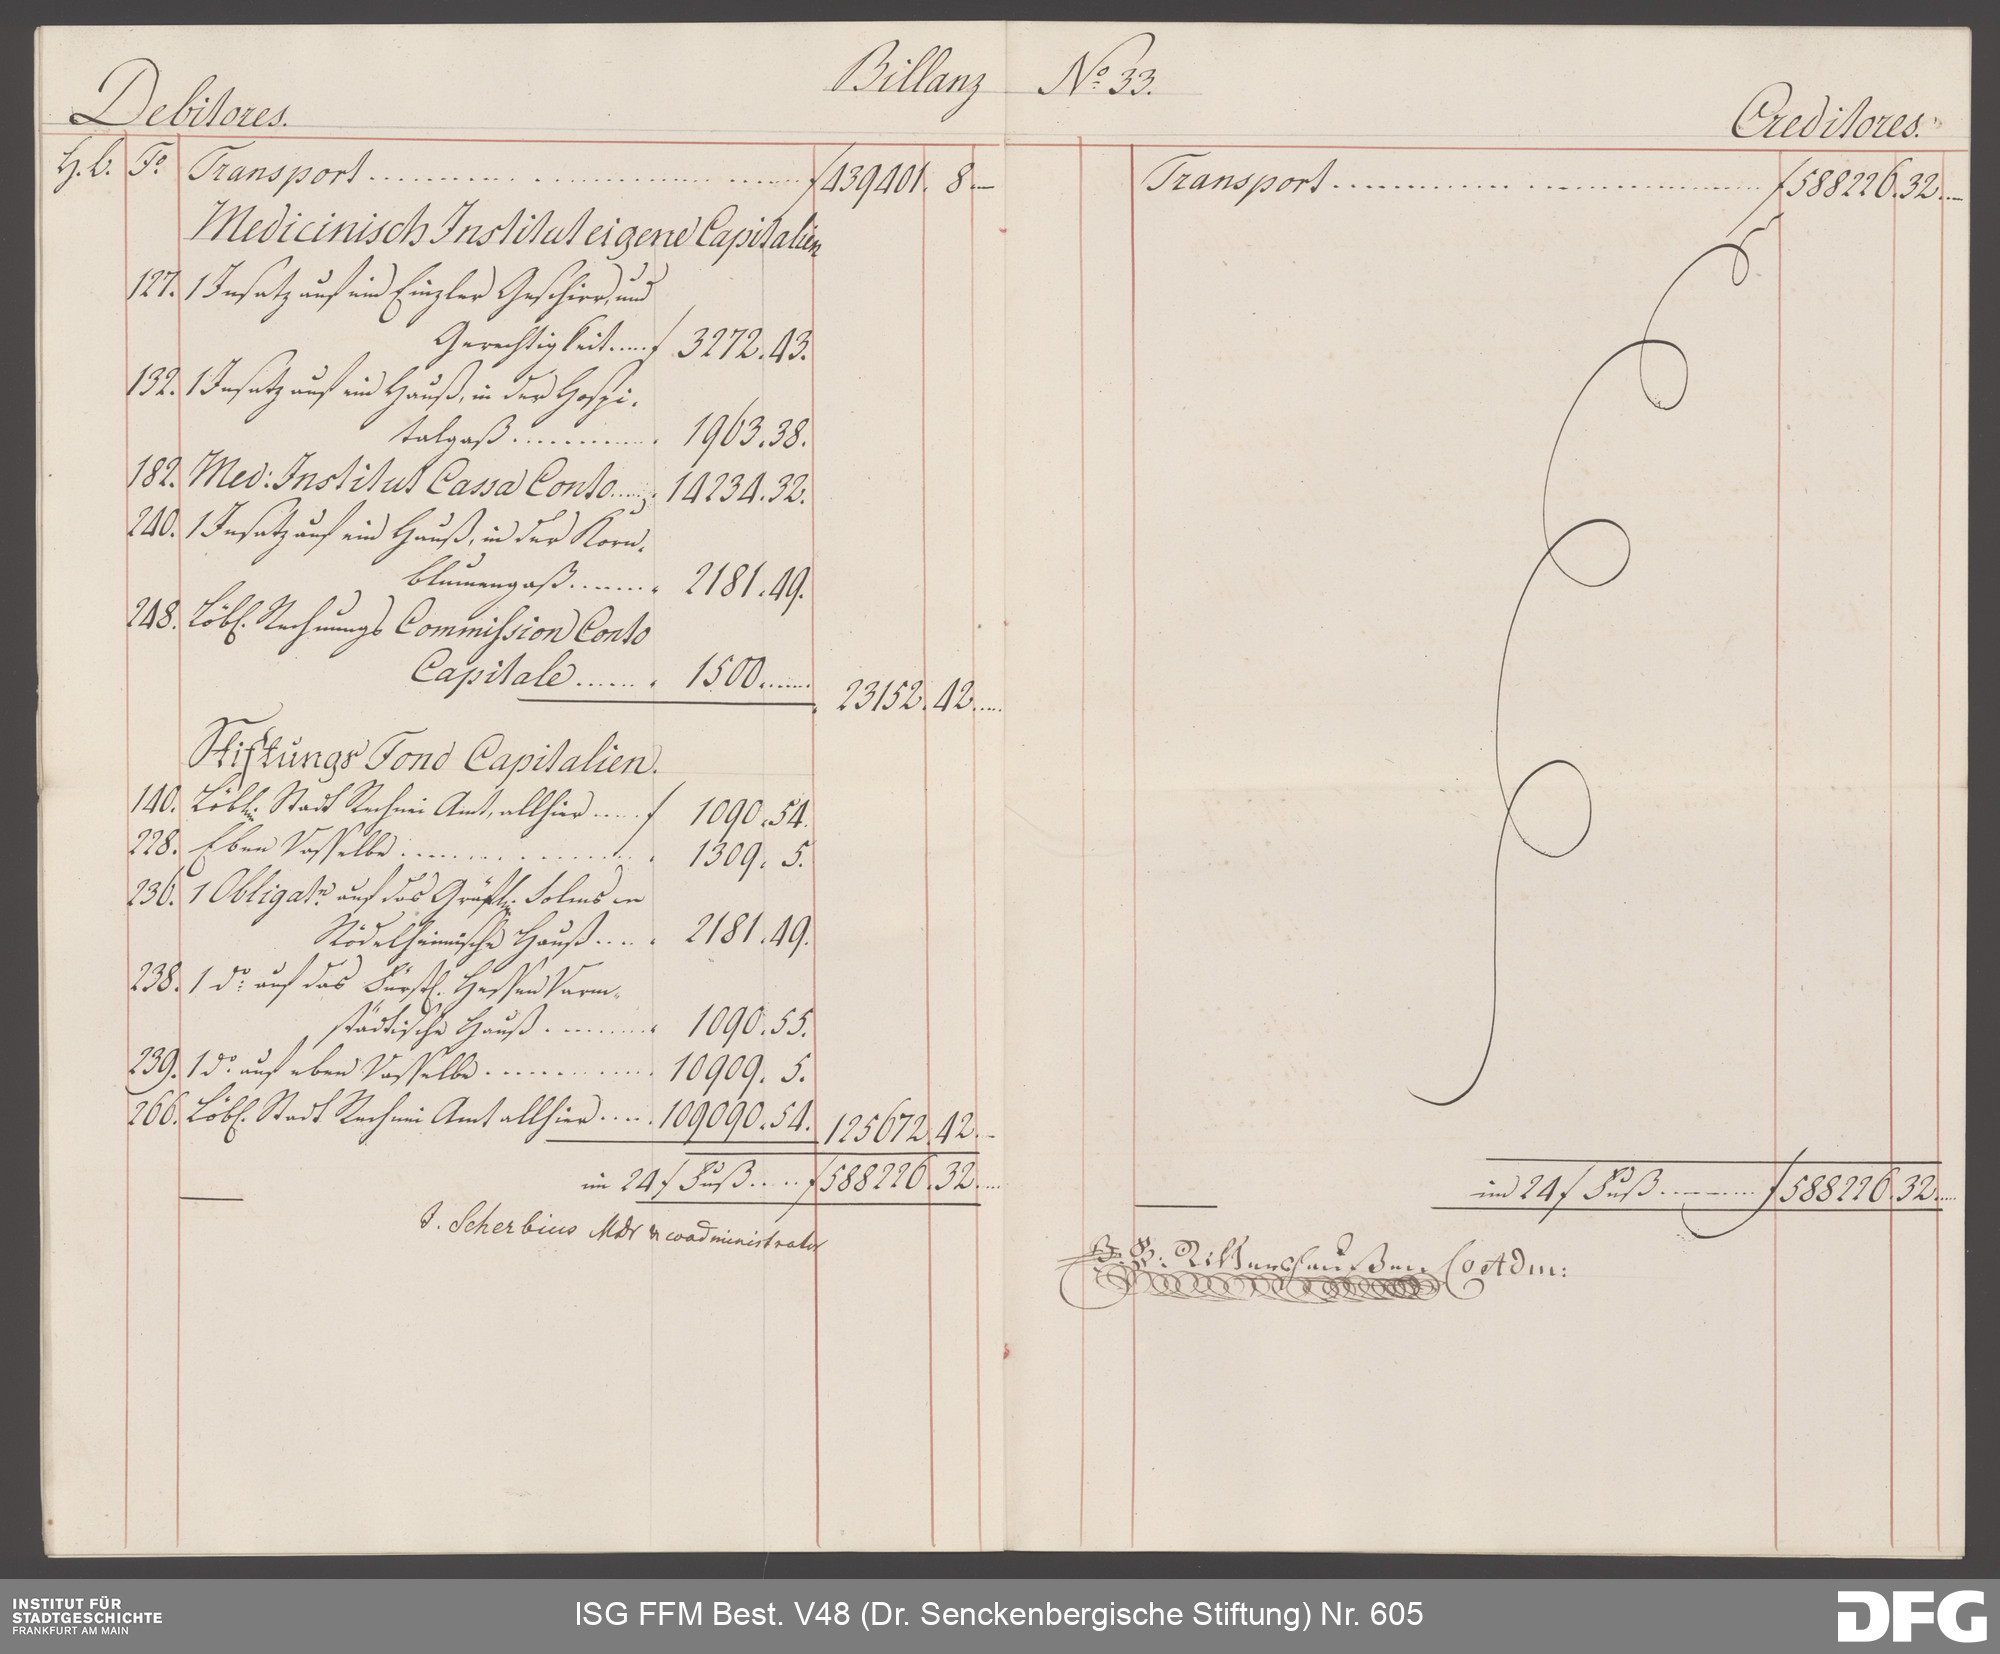 Billanz No. 33.
Debitores.
Creditores.
H. b. Fo. Transport f 439401. 8.
Medicinisch Institut eigene Capitalien
127. 1 Insatz auf ein Einzler Geschirr, und
Gerechtigkeit f 3272. 43.
132. 1 Insatz auf ein Hauß, in der Hospi-
talgaß 1963. 38.
182. Med: Institut Cassa Conto 14234. 32.
240. 1 Insatz auf ein Hauß, in der Korn-
blumengaß 2181. 49.
248. Löbl. Rechnungs Commission Conto
Capitale 1500.
23152. 42.
Stiftungs Fond Capitalien.
140. Löbl. Stadt Rechnei Amt, allhier f 1090. 54.
228. Eben Dasselbe 1309. 5.
236. 1 Obligatn. auf das Gräfl. Solms
Rödelheimische Hauß 2181. 49.
238. 1 do. auf das Fürstl. Hessen Darm-
städtische Hauß 1090. 55.
239. 1 do. auf eben Dasselbe 10909. 5.
266. Löbl. Stadt Rechnei Amt allhier 109090. 54. 125672. 42.
im 24 f Fuß f 588226. 32.
J. Scherbius MDr & coadministrator
Transport f 588226. 32.
im 24 f Fuß f 588226. 32.
Rittershaußen CoAdm:
INSTITUT FÜR
STADTGESCHICHTE
FRANKFURT AM MAIN
ISG FFM Best. V48 (Dr. Senckenbergische Stiftung) Nr. 605
DFG